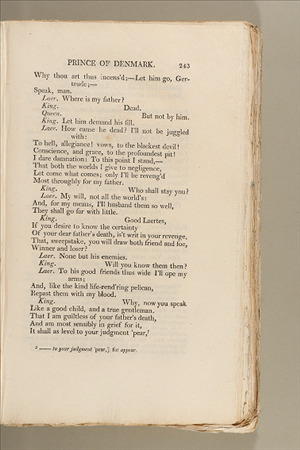 PRINCE OF DENMARK. 243
Why thou art thus incens'd;—Let him go, Ger-
trude;—
Speak, man.
Laer. Where is my father?
King. Dead.
Queen. But not by him.
King. Let him demand his fill.
Laer. How came he dead? I'll not be juggled
with:
To hell, allegiance! vows, to the blackest devil!
Conscience, and grace, to the profoundest pit!
I dare damnation: To this point I stand,—
That both the worlds I give to negligence,
Let come what comes; only I'll be reveng'd
Most throughly for my father.
King. Who shall stay you?
Laer. My will, not all the world's:
And, for my means, I'll husband them so well,
They shall go far with little.
King. Good Laertes,
If you desire to know the certainty
Of your dear father's death, is't writ in your revenge,
That, sweepstake, you will draw both friend and foe,
Winner and loser?
Laer. None but his enemies.
King. Will you know them then?
Laer. To his good friends thus wide I'll ope my
arms;
And, like the kind life-rend'ring pelican,
Repast them with my blood.
King. Why, now you speak
Like a good child, and a true gentleman.
That I am guiltless of your father's death,
And am most sensibly in grief for it,
It shall as level to your judgment 'pear,²
² —— to your judgment 'pear,] for appear.